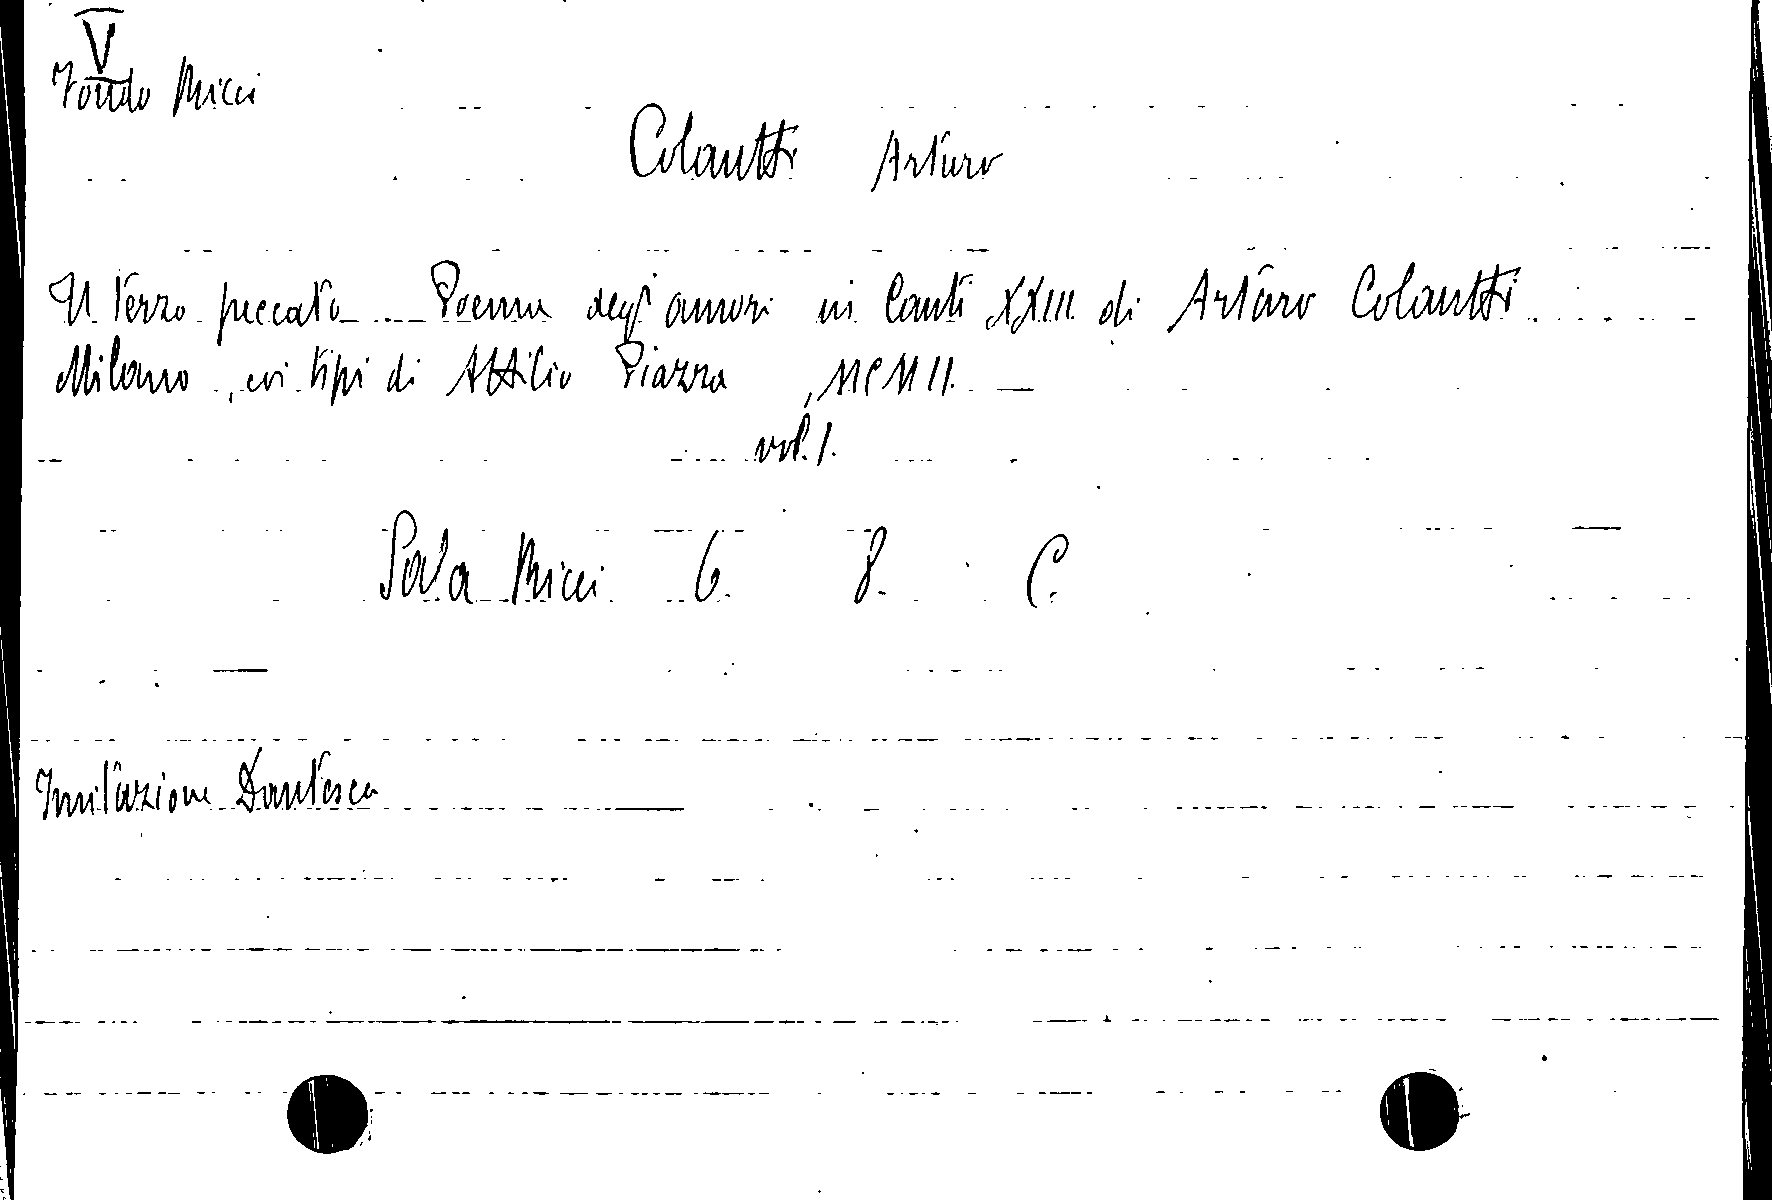 V
Fondo Ricci
Colautti Arturo
Il terzo peccato Poema degl'amori in Canti XXIII. di Arturo Colautti.
Milano, coi tipi di Attilio Piazza, MCMII.
vol. 1.
Sala Ricci 6. 8. C.
Imitazione Dantesca